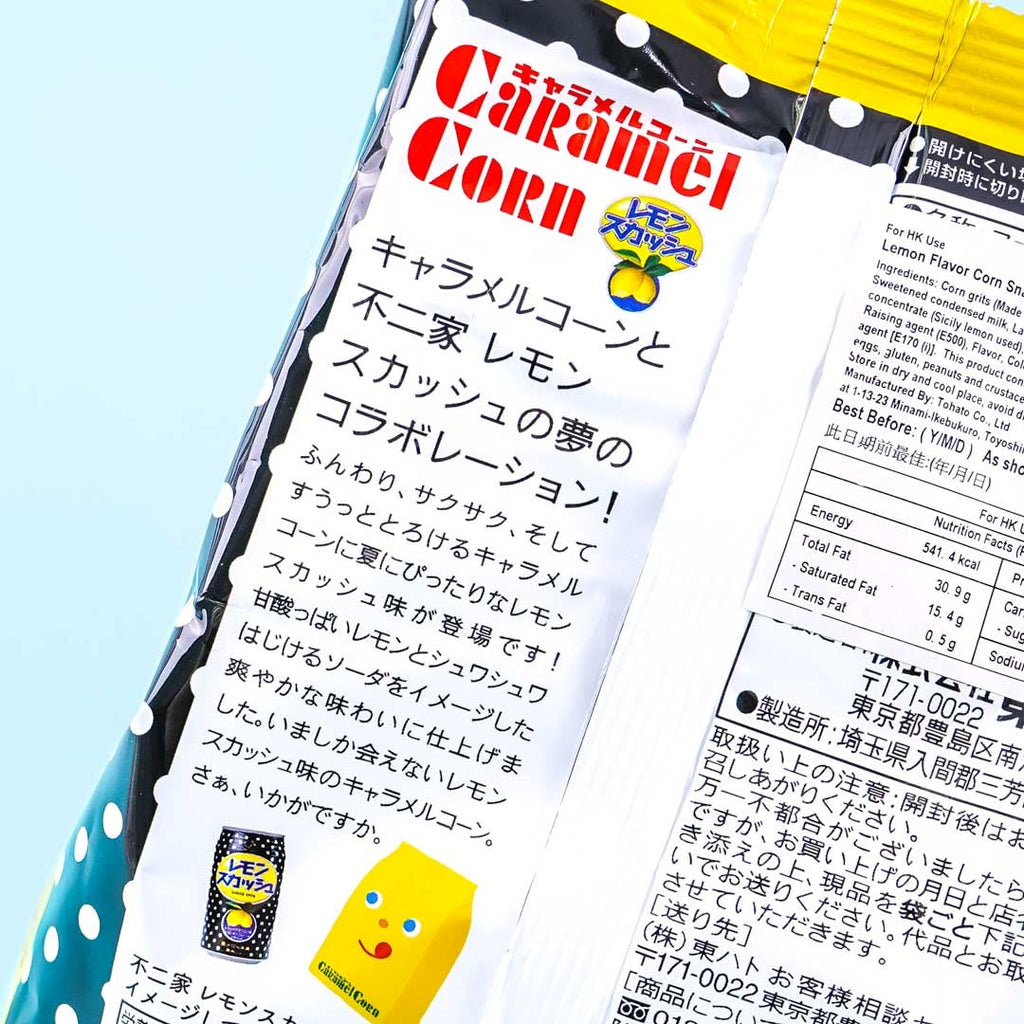 キャラメルコーン
Caramel
Corn
レモン
スカッシュ
キャラメルコーンと
不二家 レモン
スカッシュの夢の
コラボレーション!
ふんわり、サクサク、そして
すうっととろけるキャラメル
コーンに夏にぴったりなレモン
スカッシュ味が登場です!
甘酸っぱいレモンとシュワシュワ
はじけるソーダをイメージした
爽やかな味わいに仕上げま
した。いましか会えないレモン
スカッシュ味のキャラメルコーン。
さぁ、いかがですか。
レモン
スカッシュ
Caramel Corn
不二家 レモンスカ
イメージして
開けにくい場
開封時に切り
For HK Use
Lemon Flavor Corn Sna
Ingredients: Corn grits (Made
Sweetened condensed milk, La
concentrate (Sicily lemon used),
Raising agent (E500), Flavor, Col
agent [E170 (i)]. This product con
eggs, gluten, peanuts and crustace
Store in dry and cool place, avoid di
Manufactured By: Tohato Co., Ltd
at 1-13-23 Minami-Ikebukuro, Toyoshi
Best Before: ( Y/M/D ) As sho
此日期前最佳:(年/月/日)
For HK U
Nutrition Facts (P
Energy 541. 4 kcal Pr
Total Fat 30. 9 g Car
- Saturated Fat 15. 4 g - Sug
- Trans Fat 0. 5 g Sodiu
〒171-0022
東京都豊島区南
●製造所:埼玉県入間郡三芳
取扱い上の注意:開封後はお
召しあがりください。
万一不都合がございましたら
ですが、お買い上げの月日と店名
き添えの上、現品を袋ごと下記
いでお送りください。代品とお取
させていただきます。
[送り先]
(株)東ハト お客様相談
〒171-0022 東京都豊
[商品につい